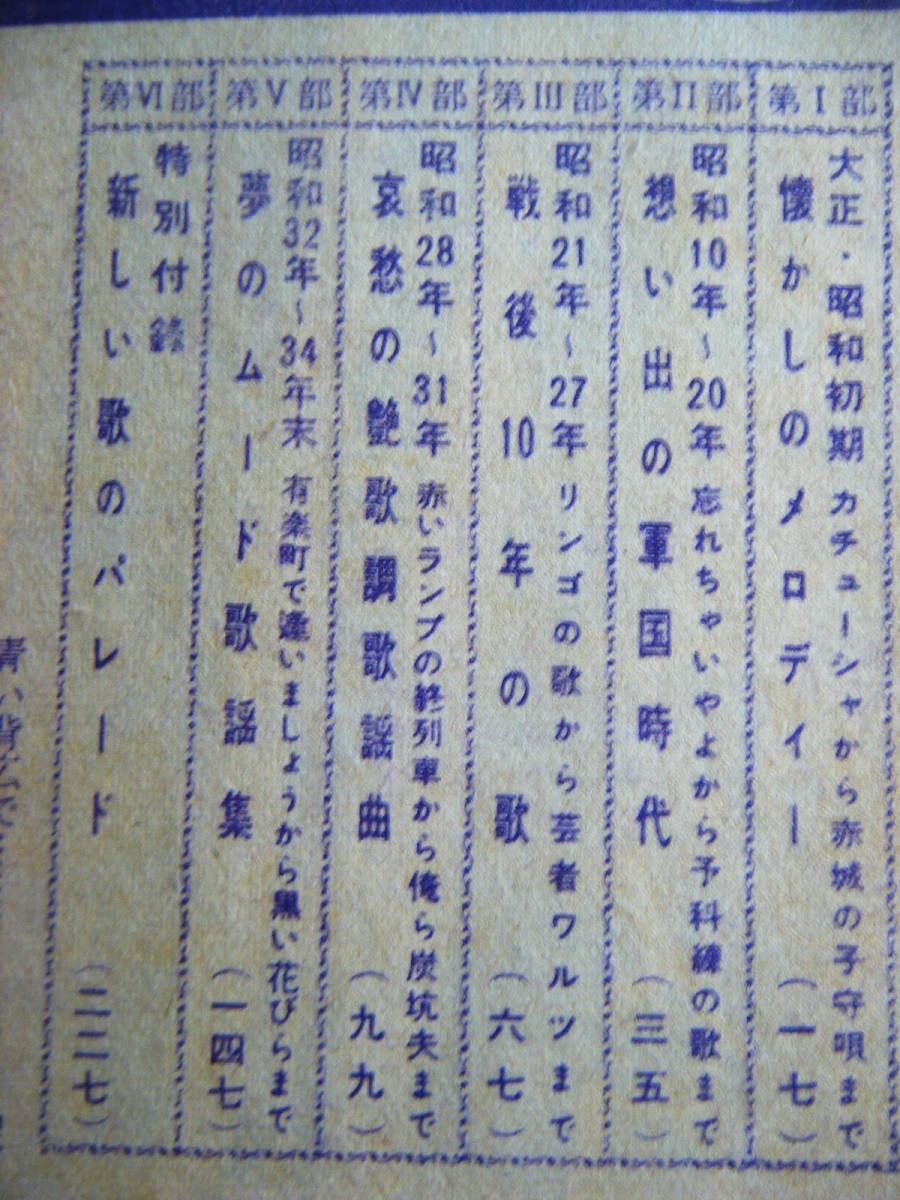 第Ⅰ部
大正・昭和初期 カチューシャから赤城の子守唄まで
懐かしのメロディー (一七)
第Ⅱ部
昭和10年~20年 忘れちゃいやよから予科練の歌まで
想い出の軍国時代 (三五)
第Ⅲ部
昭和21年~27年 リンゴの歌から芸者ワルツまで
戦後10年の歌 (六七)
第Ⅳ部
昭和28年~31年 赤いランプの終列車から俺ら炭坑夫まで
哀愁の艶歌調歌謡曲 (九九)
第Ⅴ部
昭和32年~34年末 有楽町で逢いましょうから黒い花びらまで
夢のムード歌謡集 (一四七)
第Ⅵ部
特別付録
新しい歌のパレード (二二七)